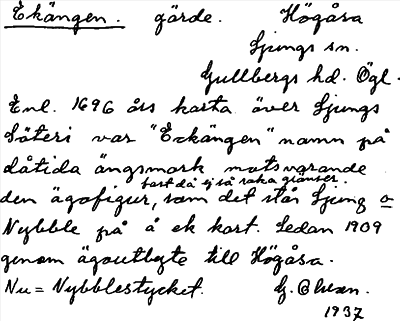 Ekängen. gärde. Högåsa
Ljungs sn.
Gullbergs hd. Ögl.
Enl. 1696 års karta över Ljungs
Säteri var "Eckängen" namn på
dåtida ängsmark motsvarande
fast då ej så raka gränser.
den ägofigur, som det står Ljung o
Nybble på å ek kart. Sedan 1909
genom ägoutbyte till Högåsa.
Nu = Nybblestycket. G. Olsson.
1937